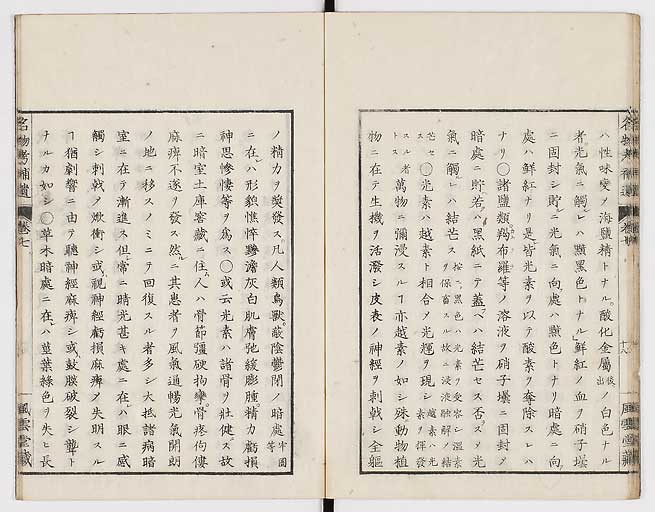 ハ性味變ヲ海鹽精トナル。酸化金屬ノ白色ナル
者光氣ニ觸レハ黯黑色トナル鮮紅ノ血ヲ硝子壜
ニ固封シ貯ニ光氣ニ向處ハ黯色トナリ暗處ニ向
處ハ鮮紅ナリ是皆光素ヲ以テ酸素ヲ奪除スレハ
ナリ○諸鹽類羯布羅等ノ溶液ヲ硝子壜ニ固封メ
暗處ニ貯若ハ黑紙ニテ蓋ヘハ結芒セス否ヌメ光
氣ニ觸レハ結芒ス
芒セ○光素ハ越素ト相合メ光煇ヲ現シ
萬物ニ彌浸スルヿ亦越素ノ如シ殊動物植
物ニ在テ生機ヲ活潑シ皮表ノ神經ヲ刺戟シ全軀
名物考補遺
十八
風雲堂藏
ノ精力ヲ奬發ス。凡人類鳥獸蔽陰鬱閉ノ暗處
ニ在ハ形貌憔悴黲澹灰白肌膚弛緩膨腫精力虧損
神思慘悽等ヲ爲ス○或云光素ハ諸骨ヲ壯健ス故
ニ暗室土庫窖藏ニ住人ハ骨節彊硬拘攣骨疼佝僂
麻痺不遂ヲ發ス然ニ其患者ヲ風氣通暢光氣開朗
ノ地ニ移スノミニテ回復スル者多シ大抵諸病暗
室ニ在テ漸進ス但常ニ暗光甚キ處ニ在ハ眼ニ感
觸シ刺戟ノ焮衝シ或視神經虧損麻痺メ失明スル
ヿ猶劇響ニ由テ聽神經麻痺シ或鼓膜破裂シ聾ト
ナルカ如シ○草木暗處ニ在ハ莖葉綠色ヲ失ヒ長
名物考補遺
卷七
風雲堂藏